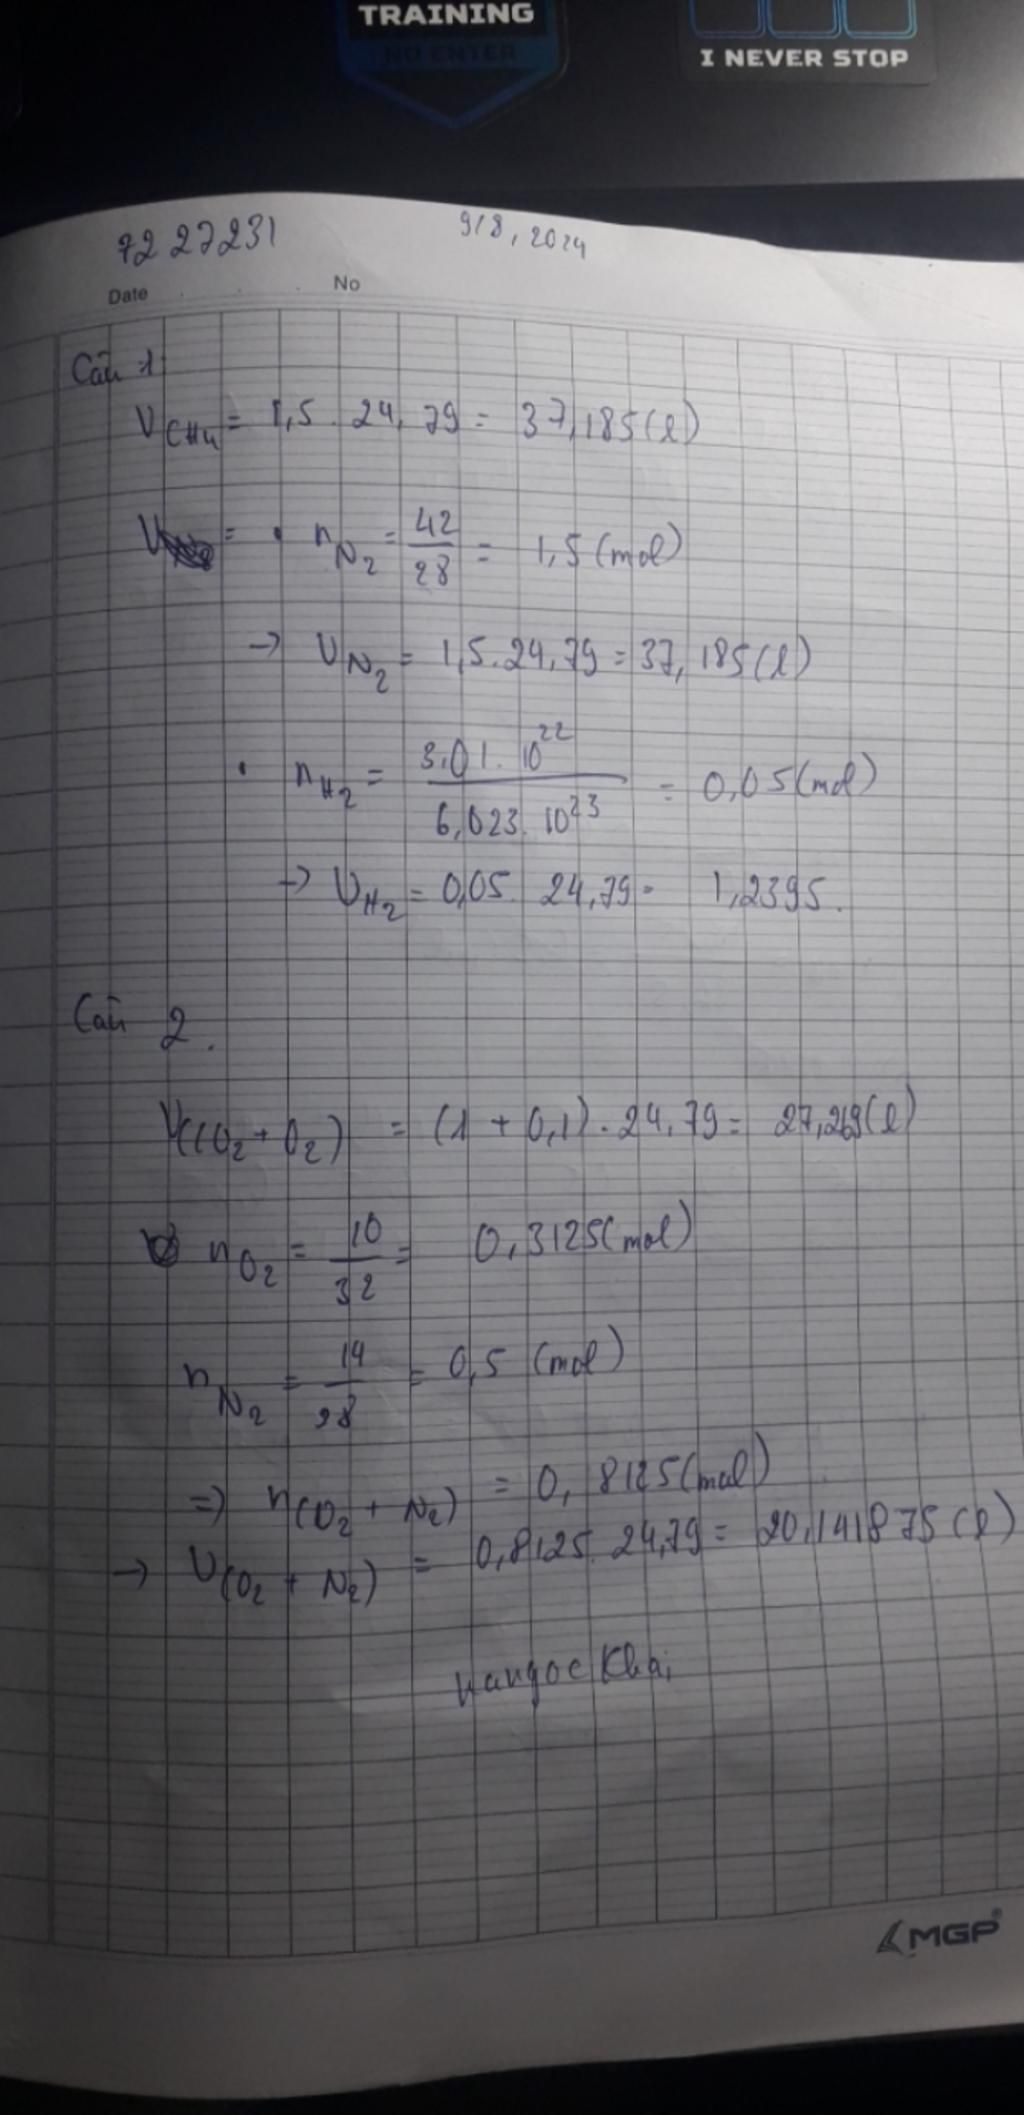 TRAINING
NO ENTER
I NEVER STOP
7227231 9/8, 2024
Date No
Câu 1
V_CH4 = 1,5 . 24,79 = 37,185 (l)
V = • n_N2 = 42/28 = 1,5 (mol)
→ V_N2 = 1,5 . 24,79 = 37,185 (l)
• n_H2 = 3,01 . 10^22 / 6,023 . 10^23 = 0,05 (mol)
→ V_H2 = 0,05 . 24,79 = 1,2395.
Câu 2.
V(CO2 + O2) = (1 + 0,1) . 24,79 = 27,269 (l)
n_O2 = 10/32 = 0,3125 (mol)
n_N2 = 14/28 = 0,5 (mol)
=> n(O2 + N2) = 0,8125 (mol)
→ V(O2 + N2) = 0,8125 . 24,79 = 20,141875 (l)
MGP